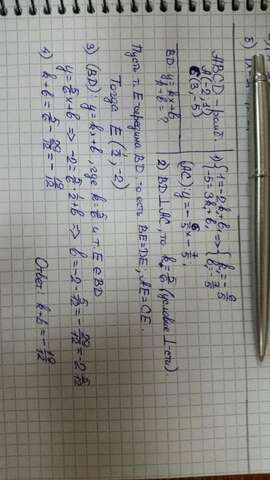 ABCD - ромб
A(-2, 1)
C(3, -5)
BD: y = kx + b
k + b = ?
1) { 1 = -2k₁ + b₁
-5 = 3k₁ + b₁ => { k₁ = -6/5
b₁ = -7/5
(AC) y = -6/5 x - 7/5
2) BD ⊥ AC, то k = 5/6 (условие ⊥-сти)
Пусть т. E - середина BD, то есть BE = DE, AE = CE.
Тогда E (1/2, -2)
3) (BD): y = kx + b, где k = 5/6 и т. E ∈ BD
y = 5/6 x + b => -2 = 5/6 · 1/2 + b => b = -2 - 5/12 = -29/12 = -2 5/12
4) k + b = 5/6 - 29/12 = -19/12
Ответ: k + b = -19/12
5)